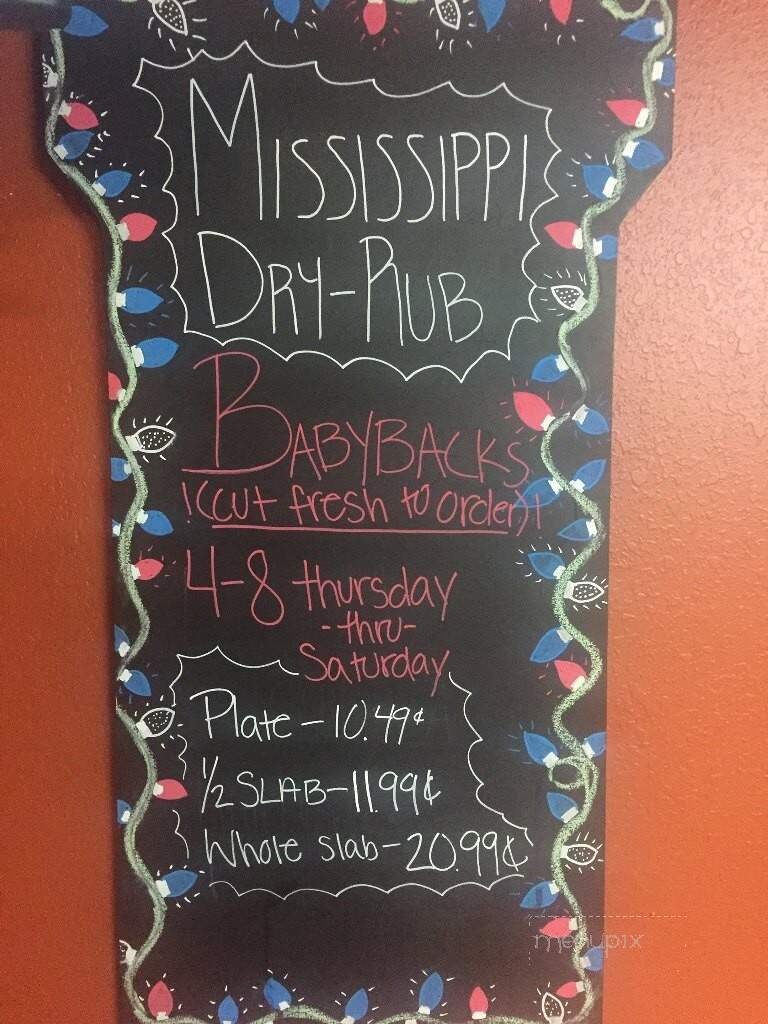 MISSISSIPPI
DRY-RUB
BABYBACKS
!(cut fresh to order)!
4-8 thursday
-thru-
Saturday
Plate-10.49¢
1/2 SLAB-11.99¢
Whole slab-20.99¢
menupix